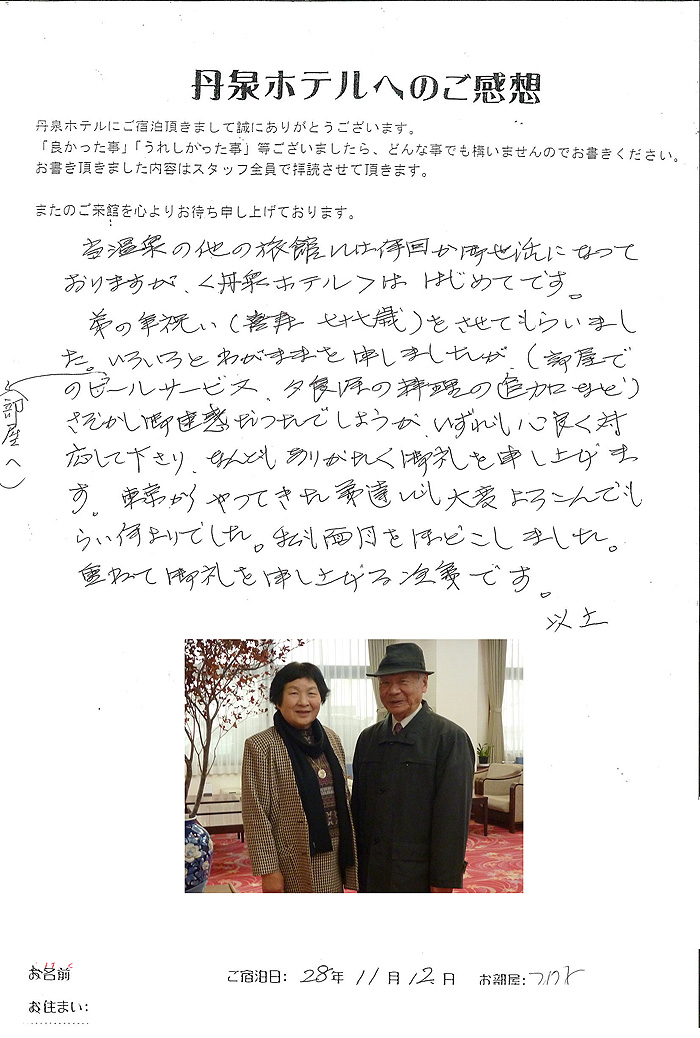 丹泉ホテルへのご感想
丹泉ホテルにご宿泊頂きまして誠にありがとうございます。
「良かった事」「うれしかった事」等ございましたら、どんな事でも構いませんのでお書きください。
お書き頂きました内容はスタッフ全員で拝読させて頂きます。
またのご来館を心よりお待ち申し上げております。
当温泉の他の旅館には何回か御世話になって
おりますが、<丹泉ホテル>は はじめてです。
弟の年祝い(喜寿 七十七歳)をさせてもらいまし
た。いろいろとわがままを申しましたが、(部屋で
のビールサービス、夕食后の料理の追加など)
(部屋へ)
さぞかし御迷惑だったでしょうが、いずれも心良く対
応して下さり、なんともありがたく御礼を申し上げま
す。東京からやってきた弟達にも大変よろこんでも
らい何よりでした。私も面目をほどこしました。
重ねて御礼を申し上げる次第です。
以上
お名前
ご宿泊日: 28年 11月12日 お部屋:
お住まい: